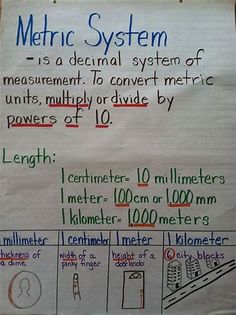 Metric System
- is a decimal system of
measurement. To convert metric
units, multiply or divide by
powers of 10.
Length:
1 centimeter= 10 millimeters
1 meter= 100 cm or 1,000 mm
1 kilometer= 1000 meters
millimeter 1 centimeter 1 meter 1 kilometer
thickness of a dime
width of a pinky finger
height of a doorknob
6 city blocks